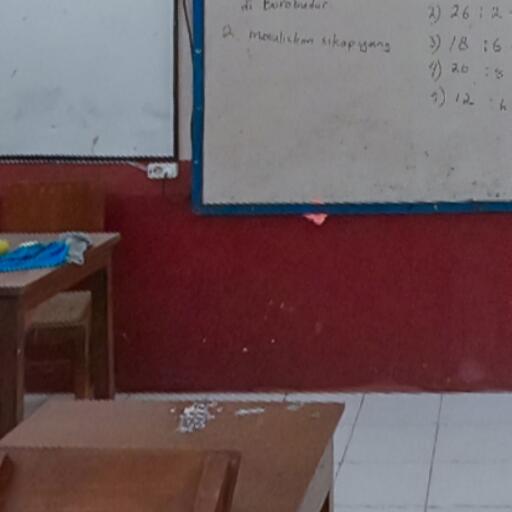 di Borobudur.
2. Menuliskan sikap yang
2) 26 : 2
3) 18 : 6
4) 20 : 5
5) 12 : 6